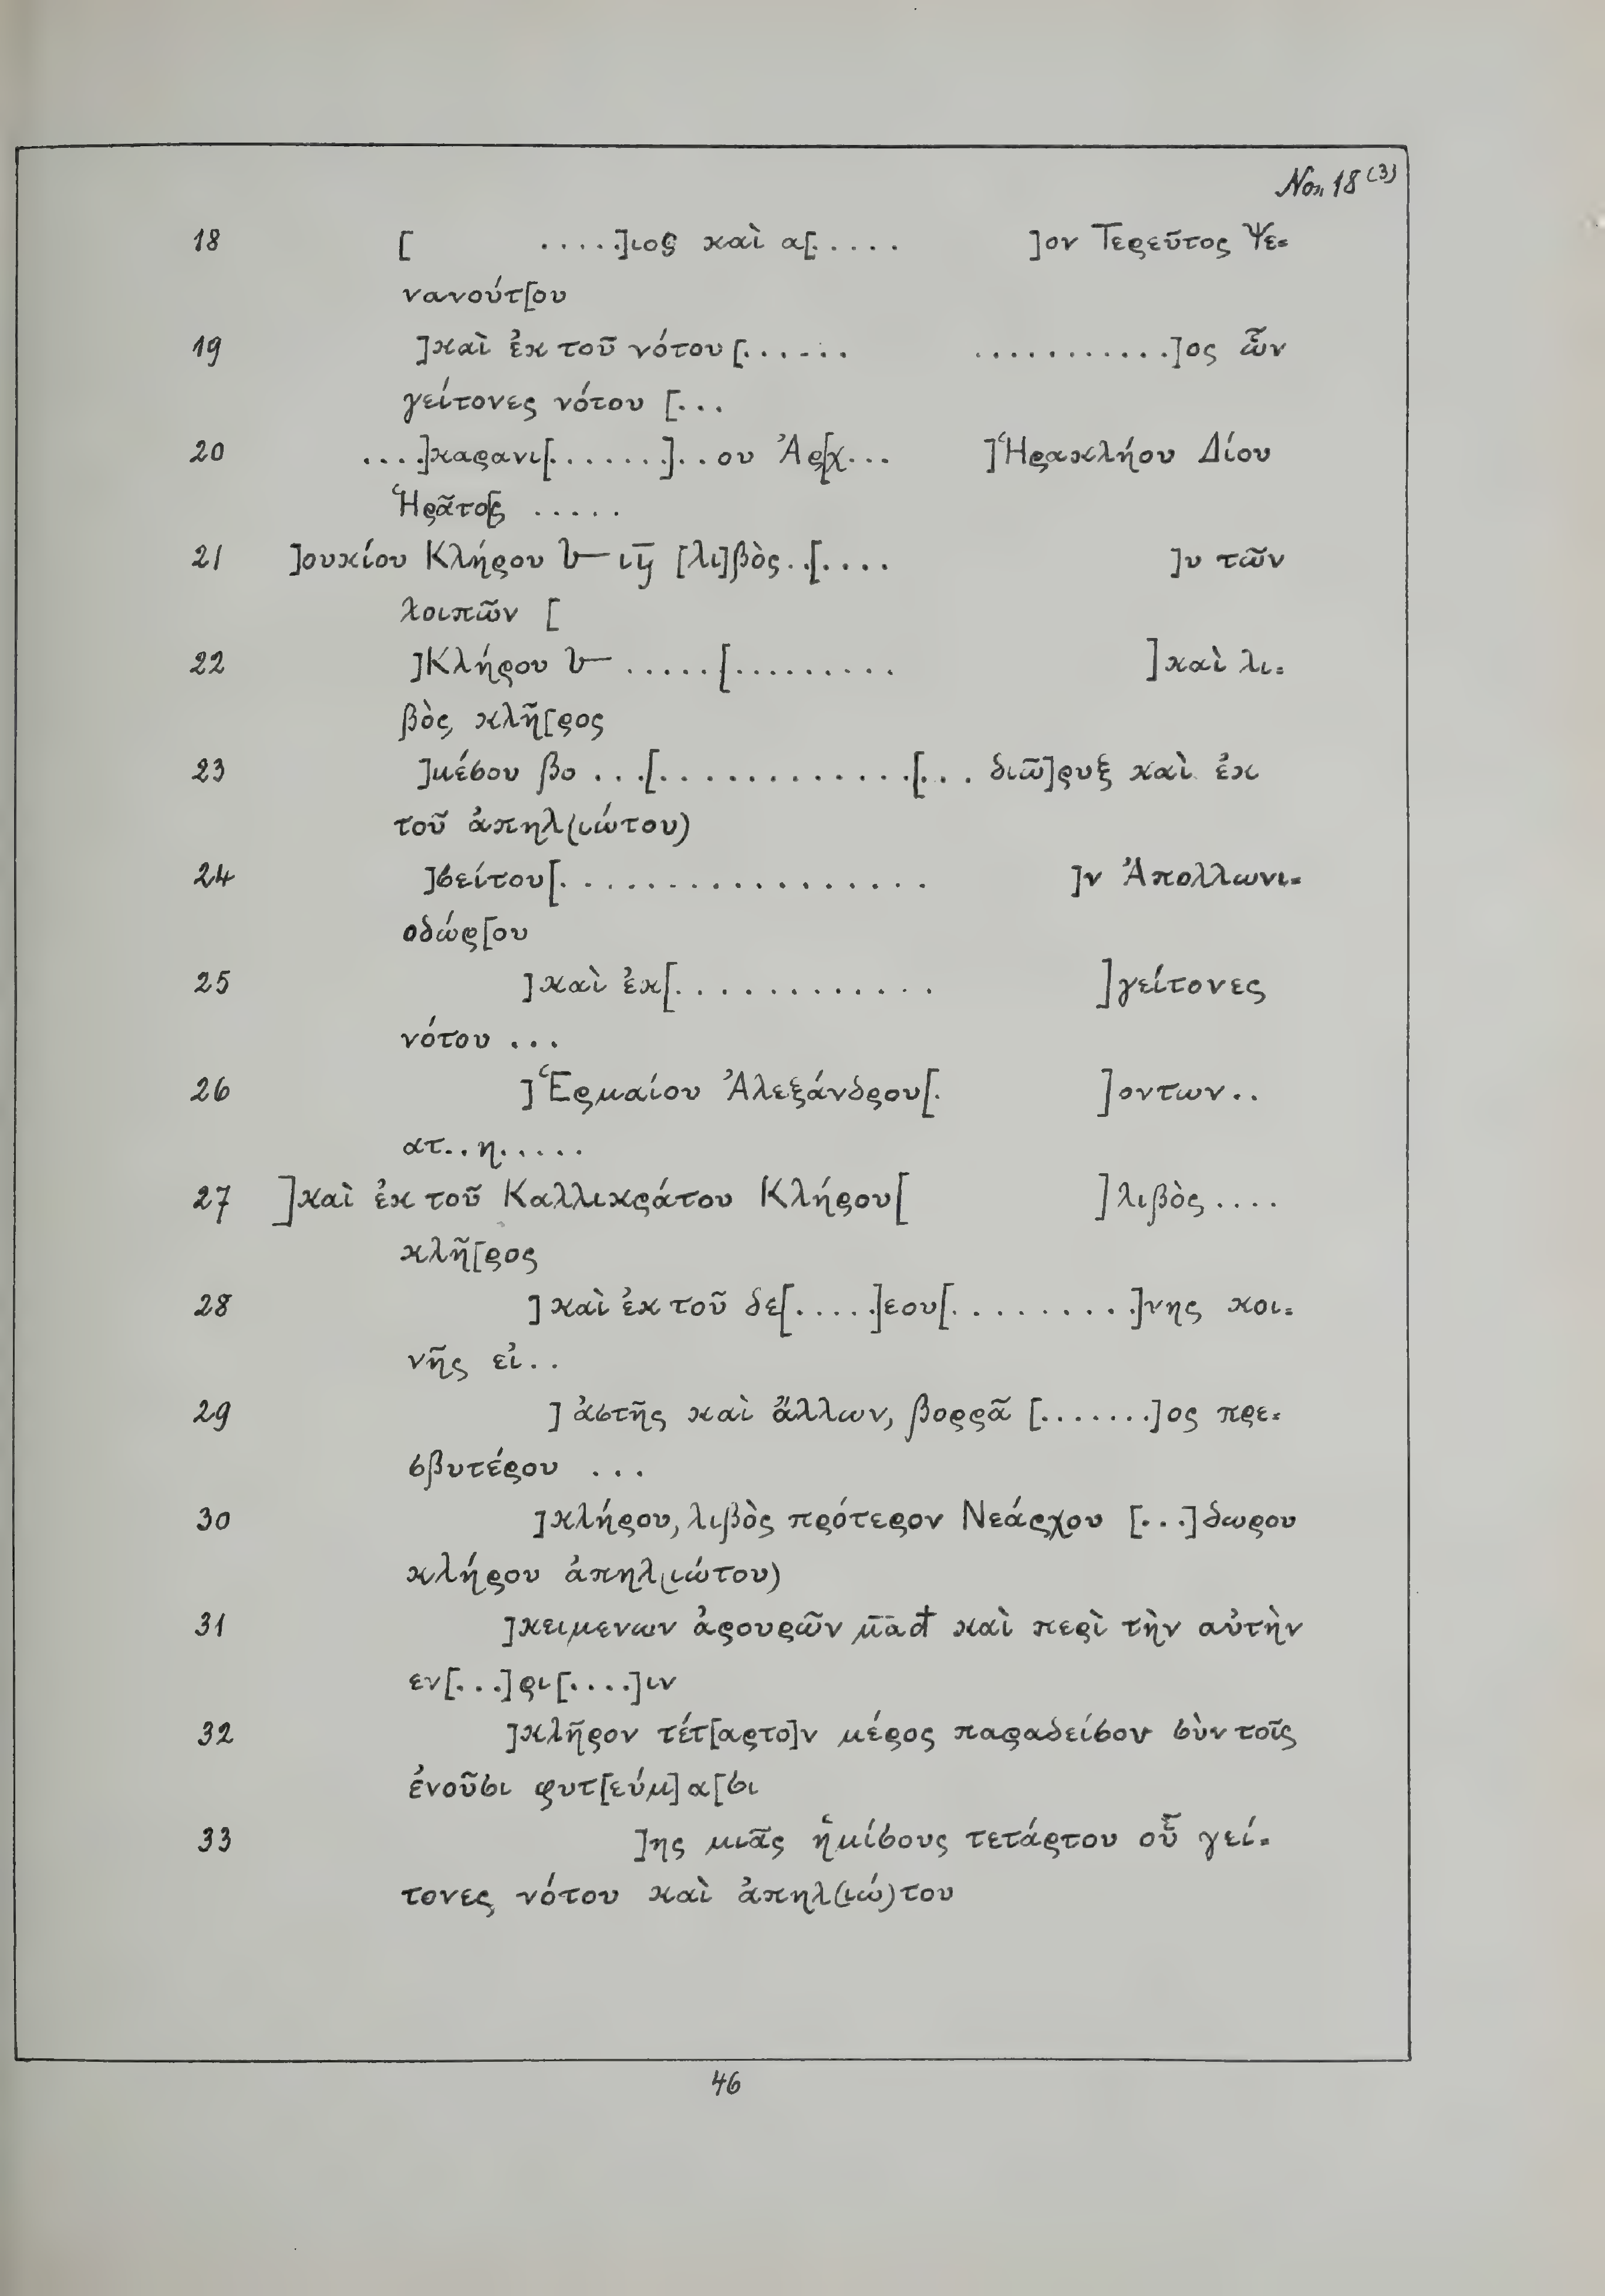 No. 18 (3)
18 [ .....]ιος καὶ α[..... ]ον Τερεῦτος Ψε=
νανούτ[ου
19 ]καὶ ἐκ τοῦ νότου [...... ...........]ος ὧν
γείτονες νότου [...
20 ....]καρανι[.......]..ου Ἀρ[χ... ]Ἡρακλήου Δίου
Ἡρᾶτο[ς .....
21 ]ουκίου Κλήρου ιη [λι]βὸς..[.... ]υ τῶν
λοιπῶν [
22 ]Κλήρου .....[......... ]καὶ λι=
βὸς κλῆ[ρος
23 ]μέσου βο ...[.............[... διῶ]ρυξ καὶ ἐκ
τοῦ ἀπηλ(ιώτου)
24 ]σείτου[................. ]ν Ἀπολλωνι=
οδώρ[ου
25 ]καὶ ἐκ[............ ]γείτονες
νότου ...
26 ]Ἑρμαίου Ἀλεξάνδρου[. ]οντων..
ατ..η.....
27 ]καὶ ἐκ τοῦ Καλλικράτου Κλήρου[ ]λιβὸς....
κλῆ[ρος
28 ]καὶ ἐκ τοῦ δε[.....]εου[.........]νης κοι=
νῆς εἰ..
29 ]ἀστῆς καὶ ἄλλων, βορρᾶ [.......]ος πρε=
σβυτέρου ...
30 ]κλήρου, λιβὸς πρότερον Νεάρχου [...]δωρου
κλήρου ἀπηλ(ιώτου)
31 ]κειμενων ἀρουρῶν μ̅α̅d̅ καὶ περὶ τὴν αὐτὴν
εν[...]ρι[....]ιν
32 ]κλῆρον τέτ[αρτο]ν μέρος παραδείσου σὺν τοῖς
ἐνοῦσι φυτ[εύμ]α[σι
33 ]ης μιᾶς ἡμίσους τετάρτου οὗ γεί=
τονες νότου καὶ ἀπηλ(ιώ)του
46